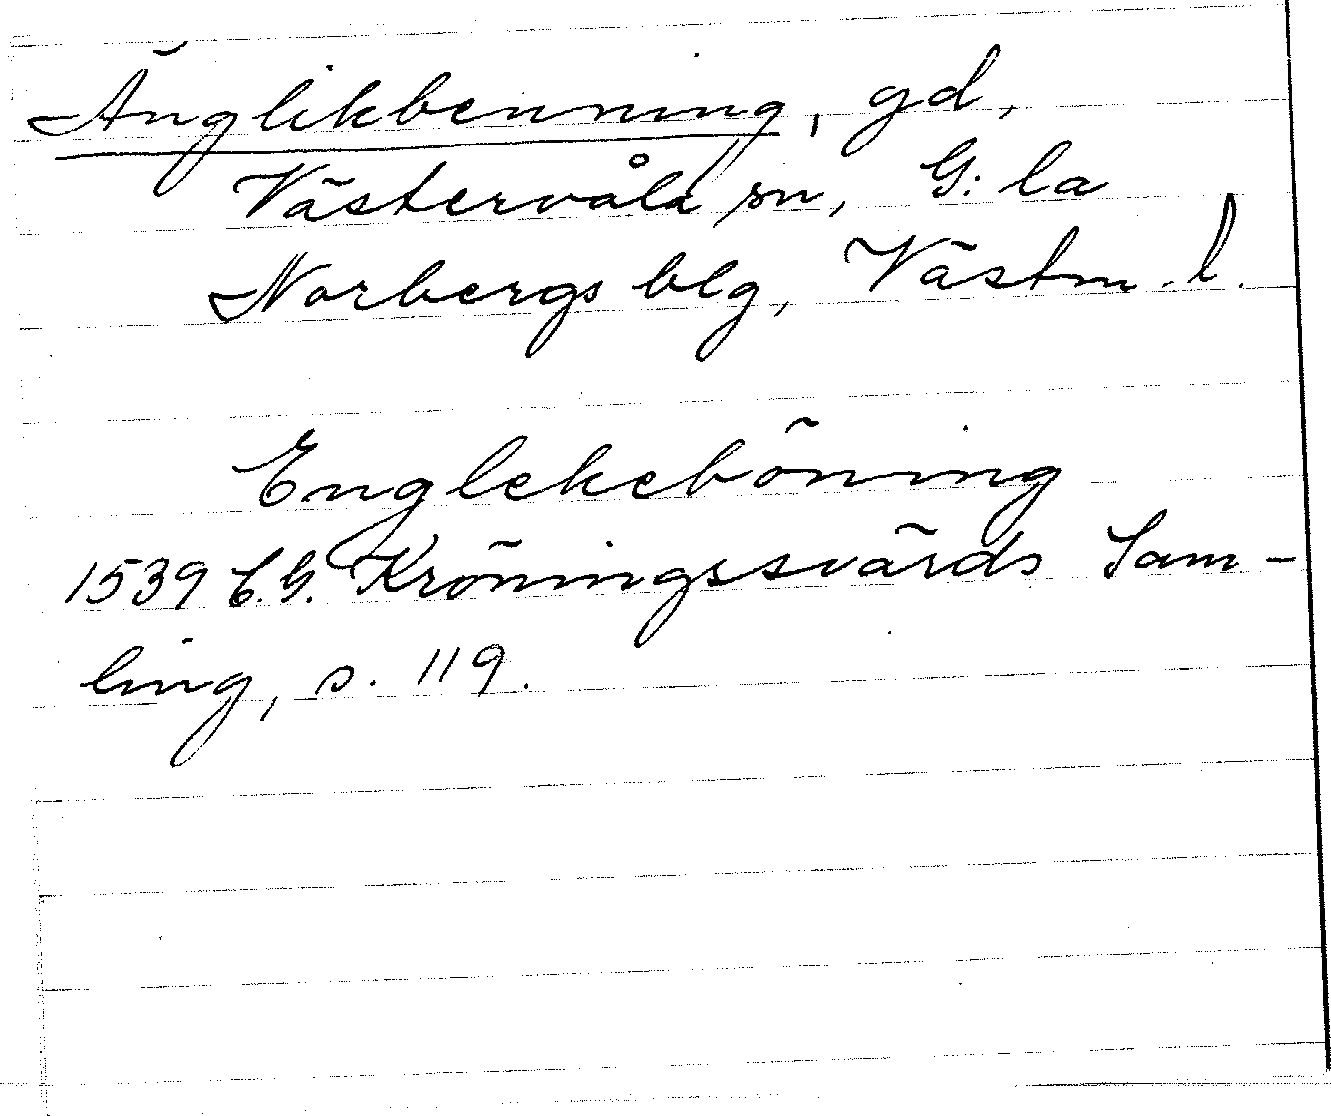 Änglikbenning, gd,
Västervåla sn, G:la
Norbergs blg, Västm. l.
Englekeböning
1539 C.G. Kröningssvärds Sam-
ling, s. 119.